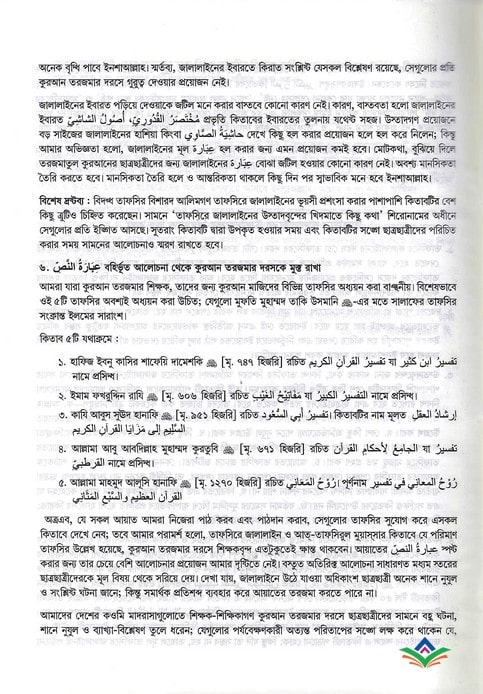 অনেক বৃদ্ধি পাবে ইনশাআল্লাহ। স্মর্তব্য, জালালাইনের ইবারতে কিরাত সংশ্লিষ্ট যেসকল বিশ্লেষণ রয়েছে, সেগুলোর প্রতি
কুরআন তরজমার দরসে গুরুত্ব দেওয়ার প্রয়োজন নেই।
জালালাইনের ইবারত পড়িয়ে দেওয়াকে জটিল মনে করার বাস্তবে কোনো কারণ নেই। কারণ, বাস্তবতা হলো জালালাইনের
ইবারত مُخْتَصَرُ القُدُوْرِيْ، أُصُولُ الشَّاشِيْ প্রকৃতি কিতাবের ইবারতের তুলনায় যথেষ্ট সহজ। উস্তাদগণ প্রয়োজনে
বড় সাইজের জালালাইনের হাশিয়া কিংবা حاشِيَةُ الصَّاوِي দেখে কিছু হল করার প্রয়োজন হলে হল করে নিলেন; কিন্তু
আমার অভিজ্ঞতা হলো, জালালাইনের মূল عِبَارة হল করার জন্য এমন প্রয়োজন কমই হবে। মোটকথা, বুঝিয়ে দিলে
তরজমাতুল কুরআনের ছাত্রছাত্রীদের জন্য জালালাইনের عِبَارة বোঝা জটিল হওয়ার কোনো কারণ নেই। অবশ্য মানসিকতা
তৈরি করতে হবে। মানসিকতা তৈরি হলে ও আন্তরিকতা থাকলে কিছু দিন পর স্বাভাবিক মনে হবে ইনশাআল্লাহ।
বিশেষ দ্রষ্টব্য : বিদগ্ধ তাফসির বিশারদ আলিমগণ তাফসিরে জালালাইনের ভূয়সী প্রশংসা করার পাশাপাশি কিতাবটির বেশ
কিছু ত্রুটিও চিহ্নিত করেছেন। সামনে ‘তাফসিরে জালালাইনের উস্তাদবৃন্দের খিদমাতে কিছু কথা’ শিরোনামের অধীনে
সেগুলোর প্রতি ইঙ্গিত আসছে। সুতরাং কিতাবটি দ্বারা উপকৃত হওয়ার সময় এবং কিতাবটির সঙ্গে ছাত্রছাত্রীদের পরিচিত
করার সময় সামনের আলোচনাও স্মরণ রাখতে হবে।
৬. عِبَارَةُ النَّصّ বহির্ভূত আলোচনা থেকে কুরআন তরজমার দরসকে মুক্ত রাখা
আমরা যারা কুরআন তরজমার শিক্ষক, তাদের জন্য কুরআন মাজিদের বিভিন্ন তাফসির অধ্যয়ন করা বাঞ্ছনীয়। বিশেষভাবে
ওই ৫টি তাফসির অবশ্যই অধ্যয়ন করা উচিত; যেগুলো মুফতি মুহাম্মদ তাকি উসমানি -এর মতে সালাফের তাফসির
সংক্রান্ত ইলমের সারাংশ।
কিতাব ৫টি যথাক্রমে :
১. হাফিজ ইবনু কাসির শাফেয়ি দামেশকি [মৃ. ৭৪৭ হিজরি] রচিত تفسيرُ القرآنِ الكريمِ যা تفسيرُ ابن كثير
নামে প্রসিদ্ধ।
২. ইমাম ফখরুদ্দিন রাযি [মৃ. ৬০৬ হিজরি] রচিত مَفاتِيْحُ الغَيْبِ যা التفسير الكبير নামে প্রসিদ্ধ।
৩. কাযি আবুস সুঊদ হানাফি [মৃ. ৯৫১ হিজরি] রচিত تفسيرُ أبي السُّعود। কিতাবটির নাম মূলত إرشادُ العقلِ
السَّلِيْمِ إلى مَزَايَا القرآن الكريم
৪. আল্লামা আবু আবদিল্লাহ মুহাম্মদ কুরতুবি [মৃ. ৬৭১ হিজরি] রচিত الجامعُ لأحكامِ القرآن যা تفسير
القرطبيّ নামে প্রসিদ্ধ।
৫. আল্লামা মাহমুদ আলুসি হানাফি [মৃ. ১২৭০ হিজরি] রচিত رُوْحُ المَعَاني। পূর্ণনাম رُوْحُ المعاني في تفسير
القرآن العظيم والسَّبْعِ المَثَاني
অতএব, যে সকল আয়াত আমরা নিজেরা পাঠ করব এবং পাঠদান করাব, সেগুলোর তাফসির সুযোগ করে এসকল
কিতাবে দেখে নেব; তবে আমার পরামর্শ হলো, তাফসিরে জালালাইন ও আত্-তাফসিরুল মুয়াস্সার কিতাবে যে পরিমাণ
তাফসির উল্লেখ হয়েছে, কুরআন তরজমার দরসে শিক্ষকবৃন্দ এতটুকুতেই ক্ষান্ত থাকবেন। আয়াতের عِبارةُ النصّ স্পষ্ট
করার জন্য তার চেয়ে বেশি আলোচনার প্রয়োজন আমার দৃষ্টিতে নেই। বস্তুত অতিরিক্ত আলোচনা সাধারণত মধ্যম স্তরের
ছাত্রছাত্রীদেরকে মূল বিষয় থেকে সরিয়ে দেয়। দেখা যায়, জালালাইনে উঠে যাওয়া অধিকাংশ ছাত্রছাত্রী অনেক শানে নুযুল
ও সংশ্লিষ্ট ঘটনা জানে; কিন্তু সমার্থক প্রতিশব্দ ব্যবহার করে আয়াতের তরজমা করতে পারে না।
আমাদের দেশের কওমি মাদরাসাগুলোতে শিক্ষক-শিক্ষিকাগণ কুরআন তরজমার দরসে ছাত্রছাত্রীদের সামনে বহু ঘটনা,
শানে নুযুল ও ব্যাখ্যা-বিশ্লেষণ তুলে ধরেন; যেগুলোর পর্যবেক্ষণকারী অত্যন্ত পরিতাপের সঙ্গে লক্ষ করে থাকেন যে,